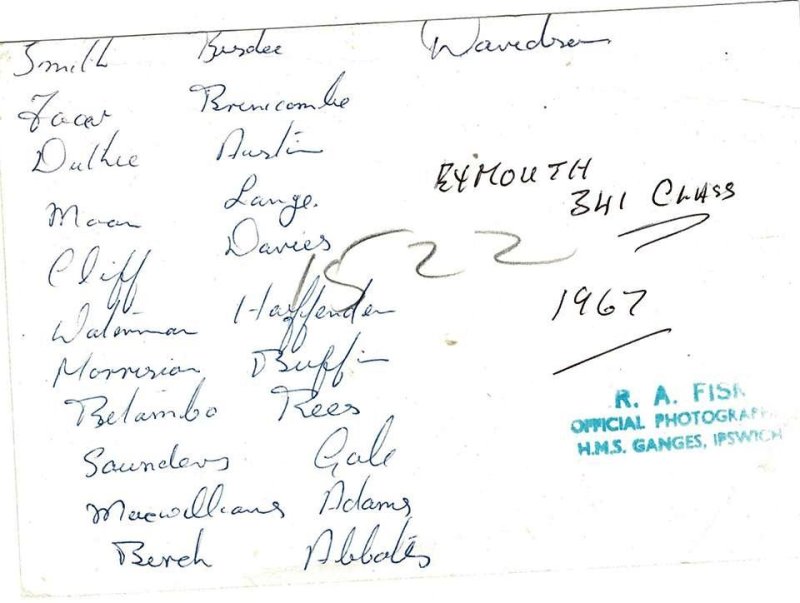 Smith Busdee Davidson
Brenicombe
Duthie Austin
Moon Lange.
Cliff Davies
Waterman Haffenden
Morrision Buffin
Betambo Rees
Saunders Gale
Macwilliams Adams
Berch Abbotts
EXMOUTH
341 CLASS
1522
1967
R. A. FISK
OFFICIAL PHOTOGRAPH
H.M.S. GANGES, IPSWICH